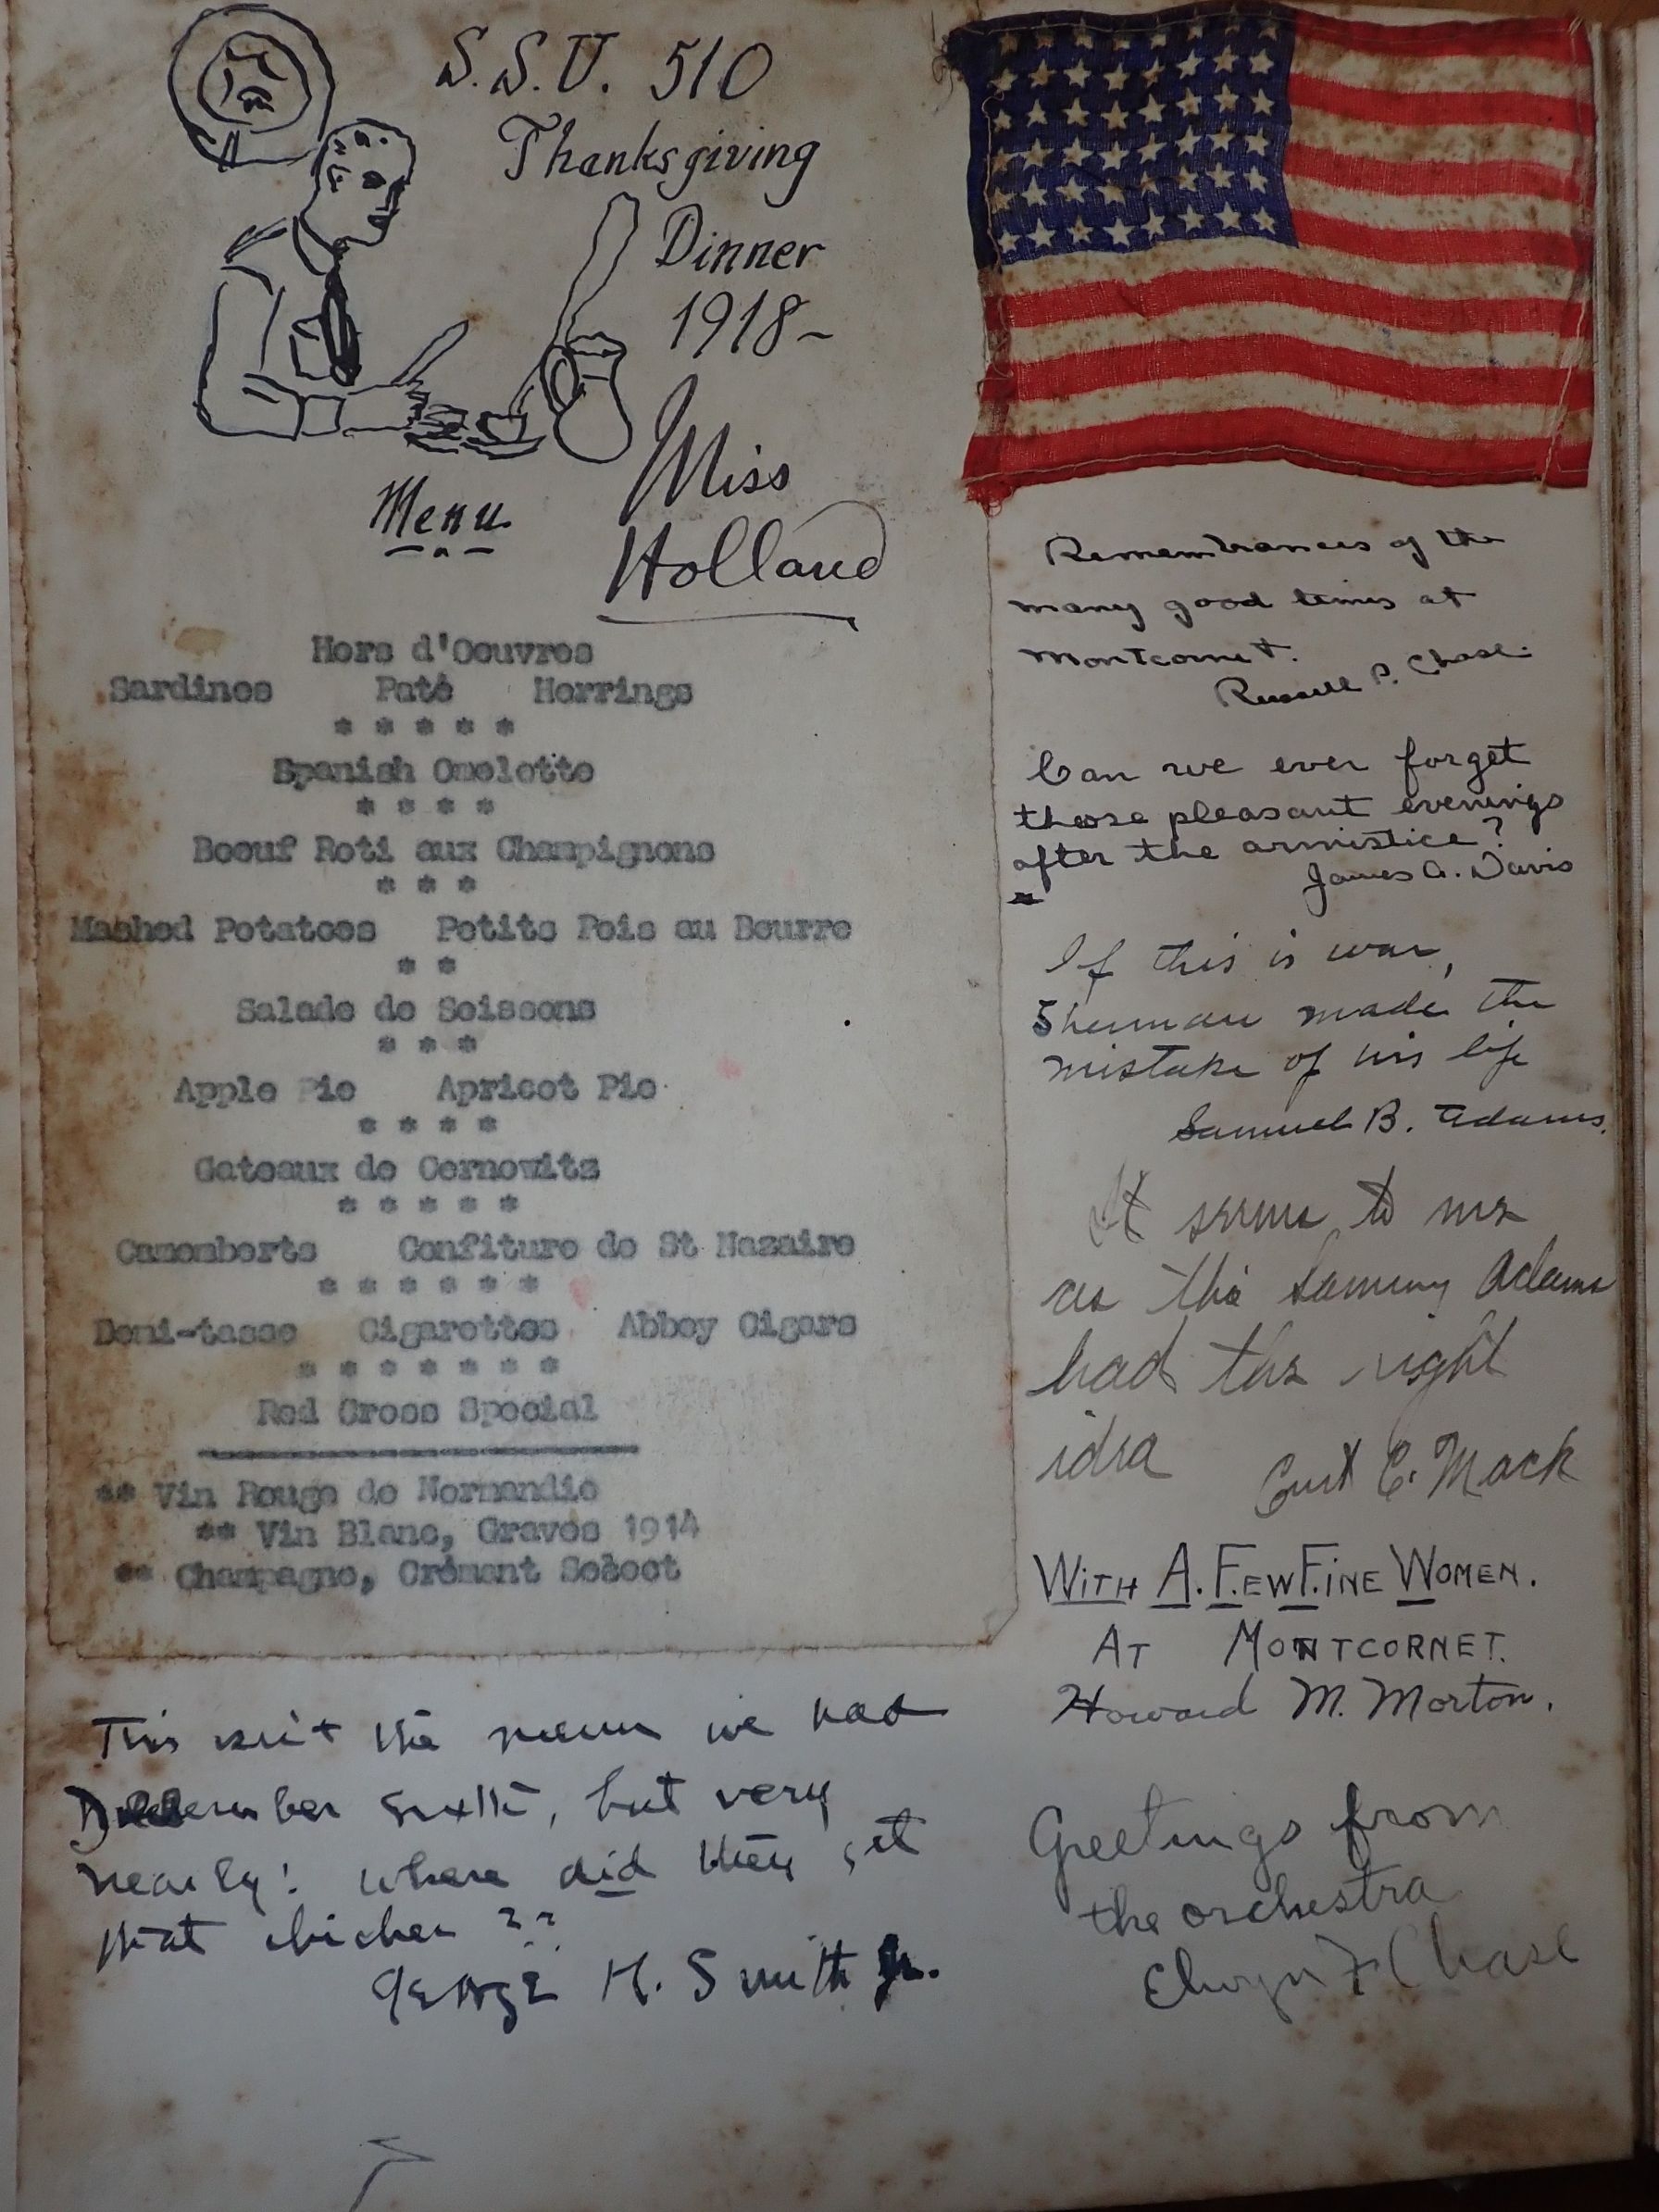 S.S.U. 510
Thanksgiving
Dinner
1918-
Miss
Holland
Menu
Hors d'Oeuvres
Sardines Paté Herrings
* * * * *
Spanish Omelette
* * * *
Boeuf Roti aux Champignons
* * *
Mashed Potatoes Petits Pois au Beurre
* *
Salade de Soissons
* * *
Apple Pie Apricot Pie
* * * *
Gateaux de Cernowitz
* * * * *
Camemberts Confiture de St Nazaire
* * * * * *
Demi-tasse Cigarettes Abbey Cigars
* * * * * * *
Red Cross Special
** Vin Rouge de Normandie
** Vin Blanc, Graves 1914
** Champagne, Crémant Select
This isn't the menu we had
December sixth, but very
nearly! where did they get
that chicken ??
George H. Smith Jr.
Remembrances of the
many good times at
Montcornet.
Russell P. Chase.
Can we ever forget
those pleasant evenings
after the armistice?
James A. Davis
If this is war,
Sherman made the
mistake of his life
Samuel B. Adams.
It seems to me
as tho Sammy Adams
had the right
idea
Curt C. Mack
WITH A. F.EW F.INE WOMEN.
AT MONTCORNET.
Howard M. Morton.
Greetings from
the orchestra
Chase